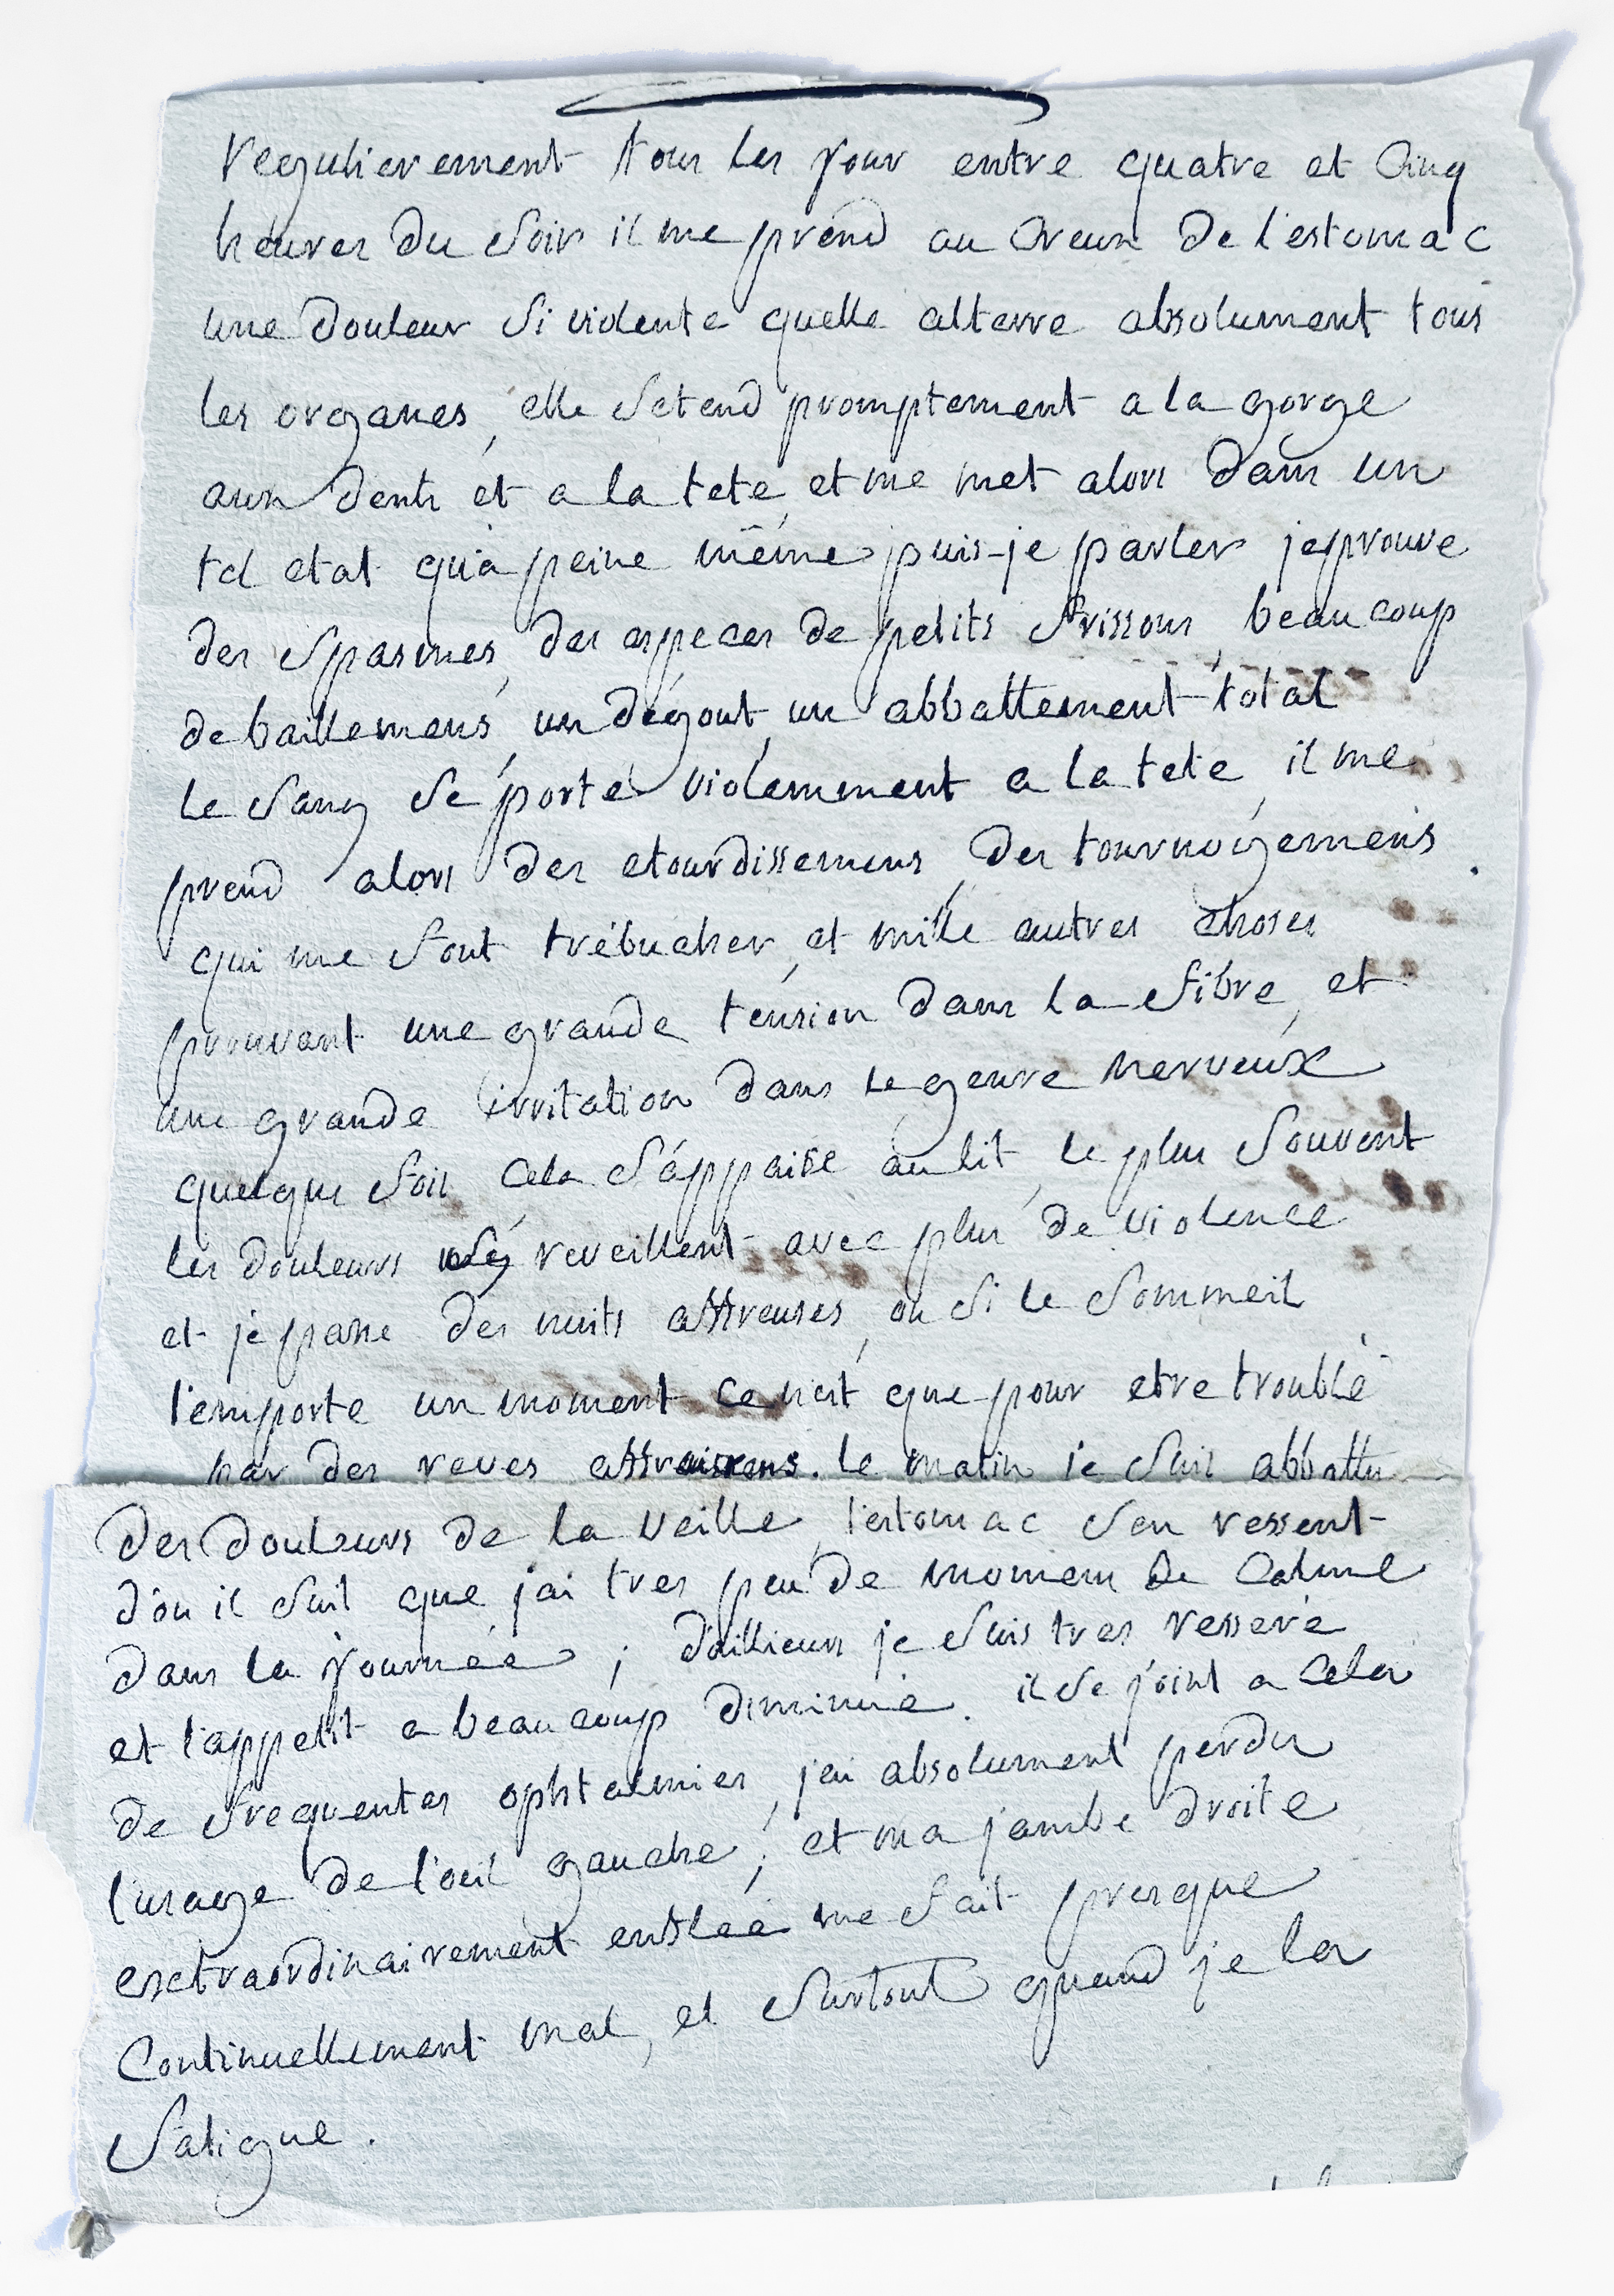 regulierement tous les jour entre quatre et cinq
heures du soir il me prend au creux de l'estomac
une douleur si violente quelle alterre absolument tous
les organes, elle setend promptement a la gorge
aux dents et a la tete, et me met alors dans un
tel etat qu'a peine même puis-je parler jeprouve
des spasmes, des especes de petits frissons, beaucoup
de baillemens, un dégout, un abbattement total
le sang se porte violemment a la tete, il me
prend alors des etourdissemens, des tournoiyemens
qui me font trébucher, et mille autres choses
prouvant une grande tension dans la fibre, et
une grande irritation dans le genre nerveux
quelque fois cela s'appaise au lit, le plus souvent
les douleurs s'y reveillent avec plus de violence
et je passe des nuits affreuses, ou si le sommeil
l'emporte un moment ce n'est que pour etre troublé
par des reves . le matin je suis abbattu
des douleurs de la veille, l'estomac s'en ressent
d'ou il suit que j'ai tres peu de momens de calme
dans la journée ; d'aillieurs je suis tres resseré
et l'appetit a beaucoup diminué. il se joint a cela
de frequentes ophtalmies, j'ai absolument perdu
l'usage de l'oeil gauche ; et ma jambe droite
exctraordinairement enflée me fait presque
continuellement mal, et surtout quand je la
fatigue.